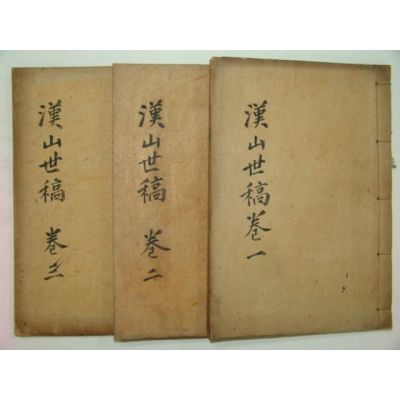 漢山世稿 卷一
漢山世稿 卷二
漢山世稿 卷三